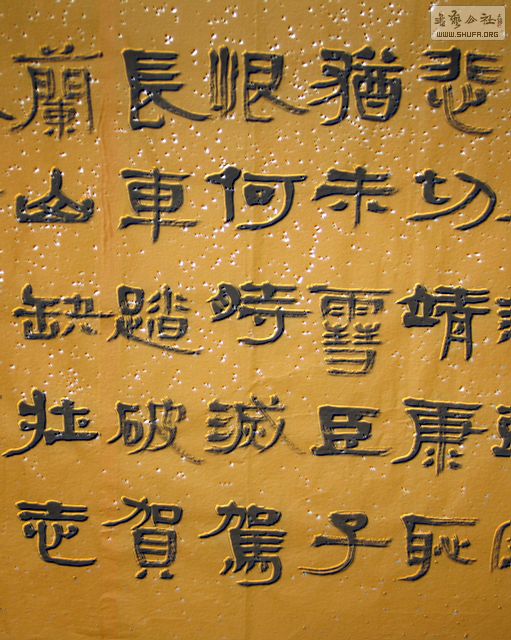 悲切靖康恥
猶未雪臣子
恨何時滅駕
長車踏破賀
蘭山缺壯志
書藝公社
WWW.SHUFA.ORG